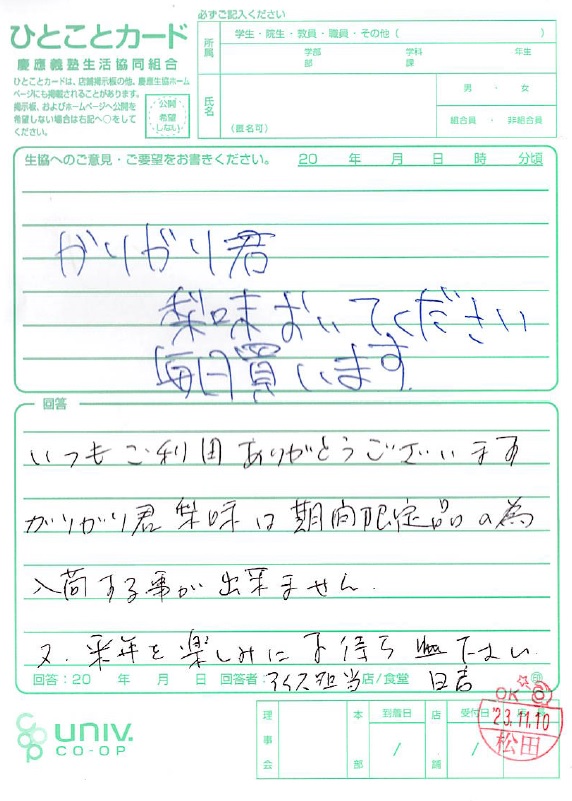 ひとことカード
慶應義塾生活協同組合
ひとことカードは、店舗掲示板の他、慶應生協ホーム
ページにも掲載されることがあります。
掲示板、およびホームページへ公開を
希望しない場合は右記へ○をして
ください。
公開
希望
しない
必ずご記入ください
所属
学生・院生・教員・職員・その他（　　　）
学部　学科　年生
部　課
氏名
（匿名可）
男　・　女
組合員　・　非組合員
生協へのご意見・ご要望をお書きください。　20　年　月　日　時　分頃
がりがり君
梨味おいてください
毎日買います
回答
いつもご利用ありがとうございます
がりがり君 梨味は期間限定品の為
入荷する事が出来ません.
又.来年を楽しみにお待ち 下さい.
回答：20　年　月　日　回答者：アイス担当 店/食堂　日吉　㊞
UNIV.
CO-OP
理事会
本部
到着日
/
店舗
受付日
/
OK
'23.11.10
松田